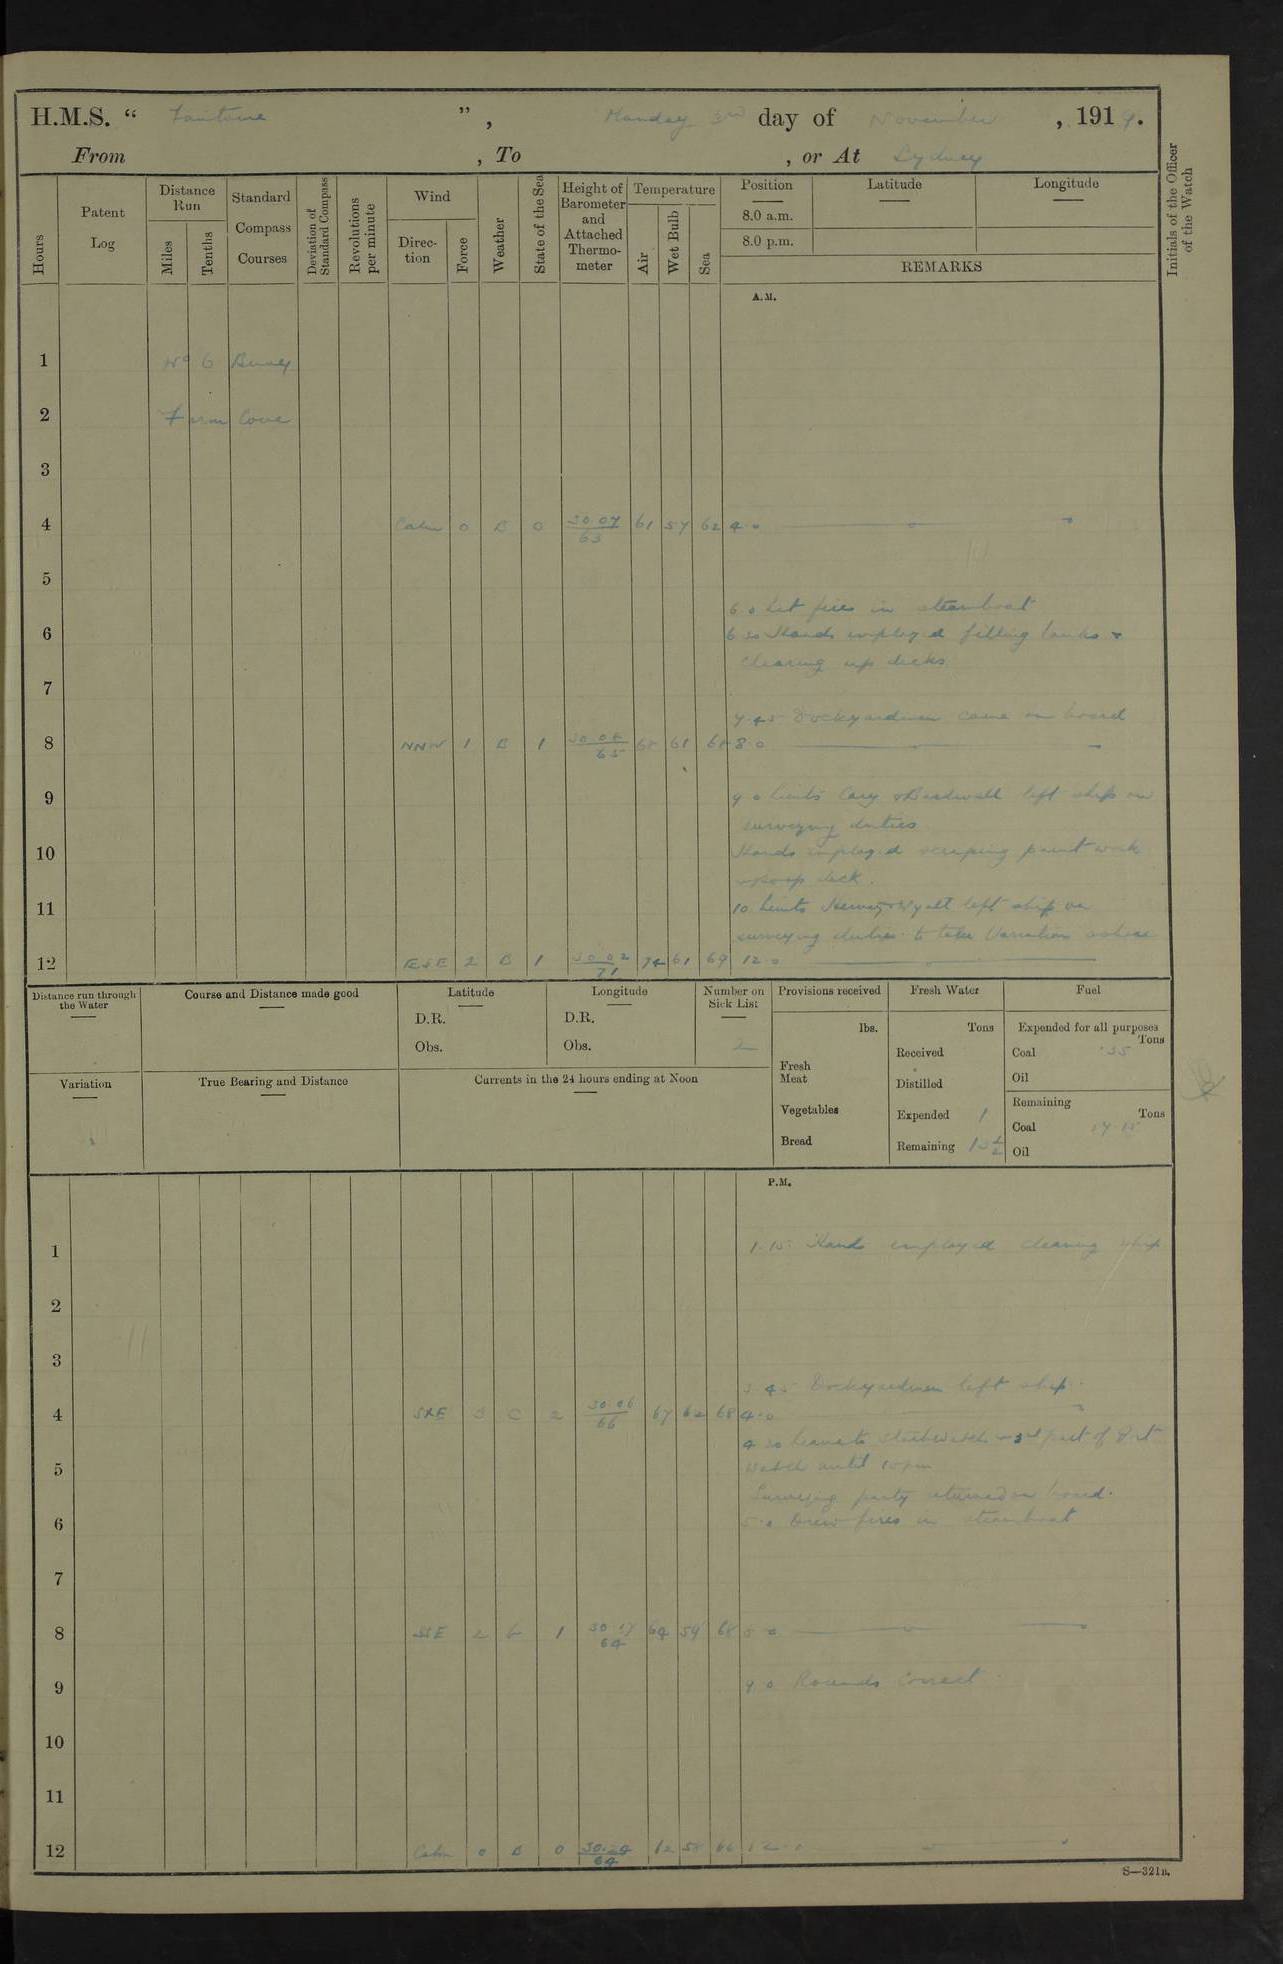 H.M.S. “ Fantome ” , Monday 3rd day of November , 1919.
From , To , or At Sydney
Initials of the Officer of the Watch
Hours
Patent Log
Distance Run
Miles
Tenths
Standard Compass Courses
Deviation of Standard Compass
Revolutions per minute
Wind
Direc-tion
Force
Weather
State of the Sea
Height of Barometer and Attached Thermo-meter
Temperature
Air
Wet Bulb
Sea
Position Latitude Longitude
8.0 a.m.
8.0 p.m.
REMARKS
A.M.
1 No 6 Buoy
2 Farm Cove
3
4 Calm 0 B 0 30.07 63 61 57 62 4.0
5
6.0 Lit fires in steamboat
6 6.30 Hands employed filling tanks &
clearing up decks
7
7.45 Dockyardmen came on board
8 NNW 1 B 1 65 61 8.0
9 9.0 Lieuts Cary & Bardwell left ship on
surveying duties
10 Hands employed scraping paint work
deck.
11 10 Lieuts Wyatt left ship on
surveying duties to take Variation ashore
12 ESE 2 B 1 30.02 71 74 61 69 12.0
Distance run through the Water
Course and Distance made good
Latitude
D.R.
Obs.
Longitude
D.R.
Obs.
Number on Sick List
2
Provisions received
lbs.
Fresh Meat
Vegetables
Bread
Fresh Water
Tons
Received
Distilled
Expended 1
Remaining
Fuel
Expended for all purposes
Tons
Coal .35
Oil
Remaining
Tons
Coal
Oil
Variation
True Bearing and Distance
Currents in the 24 hours ending at Noon
P.M.
1 1.15 Hands employed cleaning ship
2
3
3.45 Dockyardmen left ship.
4 SxE 3 C 2 30.06 66 67 62 68 4.0
4.30 Leave to Starb Watch & 2nd part of Port
5 Watch until 10 pm
Surveying party returned on board.
6 5.0 Drew fires in steamboat
7
8 SSE 2 1 30.17 64 64 59 68
9 9.0 Rounds Correct
10
11
12 Calm 0 B 0 30.24 64 62 58 66 12.0
S—321B.